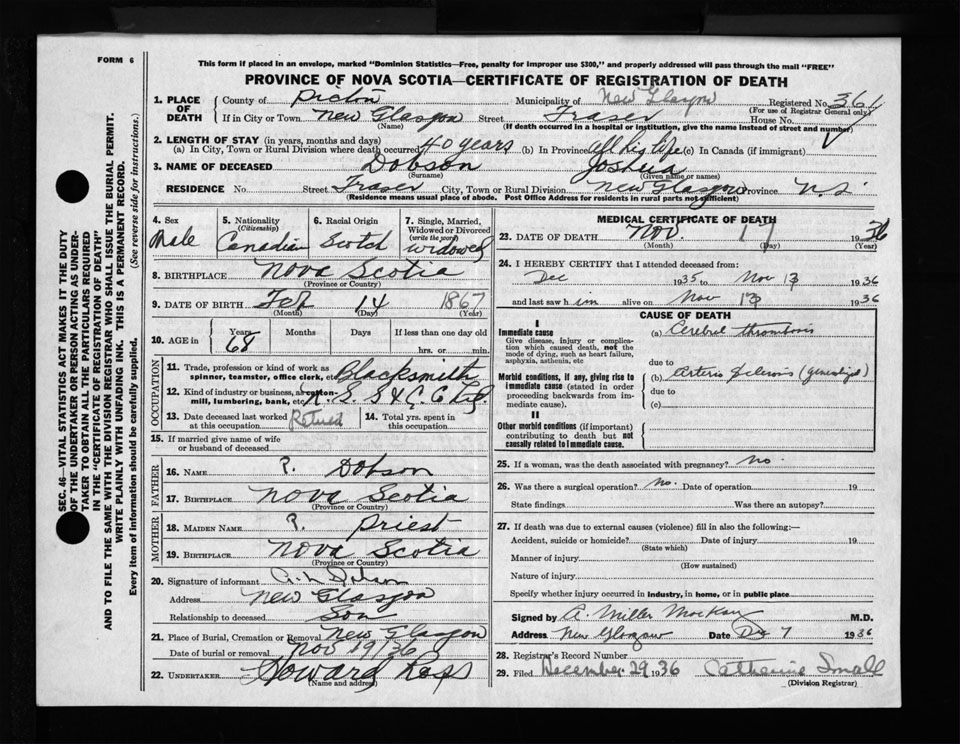 FORM 6
This form if placed in an envelope, marked "Dominion Statistics—Free, penalty for improper use $300," and properly addressed will pass through the mail "FREE"
PROVINCE OF NOVA SCOTIA—CERTIFICATE OF REGISTRATION OF DEATH
1. PLACE OF DEATH County of Pictou Municipality of New Glasgow Registered No. 361
(For use of Registrar General only)
If in City or Town New Glasgow Street Fraser House No.
(Name) (If death occurred in a hospital or institution, give the name instead of street and number)
2. LENGTH OF STAY (in years, months and days)
(a) In City, Town or Rural Division where death occurred 40 years (b) In Province all his life (c) In Canada (if immigrant)
3. NAME OF DECEASED Dobson Joshua
(Surname) (Given name or names)
RESIDENCE No. Street Fraser City, Town or Rural Division New Glasgow Province N.S.
(Residence means usual place of abode. Post Office Address for residents in rural parts not sufficient)
4. Sex 5. Nationality (Citizenship) 6. Racial Origin 7. Single, Married, Widowed or Divorced (write the word)
Male Canadian Scotch Widowed
8. BIRTHPLACE Nova Scotia
(Province or Country)
9. DATE OF BIRTH Feb 14 1867
(Month) (Day) (Year)
10. AGE in Years Months Days If less than one day old
68 hrs. or min.
OCCUPATION
11. Trade, profession or kind of work as spinner, teamster, office clerk, etc. Blacksmith
12. Kind of industry or business, as cotton-mill, lumbering, bank, etc. N.S. S & C. Co
13. Date deceased last worked at this occupation Retired 14. Total yrs. spent in this occupation
15. If married give name of wife or husband of deceased
FATHER
16. NAME ? Dobson
17. BIRTHPLACE Nova Scotia
(Province or Country)
MOTHER
18. MAIDEN NAME ? Priest
19. BIRTHPLACE Nova Scotia
(Province or Country)
20. Signature of informant
Address New Glasgow
Relationship to deceased Son
21. Place of Burial, Cremation or Removal New Glasgow
Date of burial or removal Nov 19 '36
22. UNDERTAKER Howard Ross
(Name and address)
MEDICAL CERTIFICATE OF DEATH
23. DATE OF DEATH Nov. 17 1936
(Month) (Day) (Year)
24. I HEREBY CERTIFY that I attended deceased from:
Dec 1935 to Nov 13 1936
and last saw him alive on Nov 13 1936
CAUSE OF DEATH
I
Immediate cause
Give disease, injury or complication which caused death, not the mode of dying, such as heart failure, asphyxia, asthenia, etc
(a) Cerebral thrombosis
due to
Morbid conditions, if any, giving rise to immediate cause (stated in order proceeding backwards from immediate cause).
(b) Arterio Sclerosis
due to
(c)
II
Other morbid conditions (if important) contributing to death but not causally related to immediate cause.
25. If a woman, was the death associated with pregnancy? no.
26. Was there a surgical operation? no. Date of operation 19
State findings Was there an autopsy?
27. If death was due to external causes (violence) fill in also the following:—
Accident, suicide or homicide? Date of injury 19
(State which)
Manner of injury
(How sustained)
Nature of injury
Specify whether injury occurred in industry, in home, or in public place
Signed by A. Miller MacKay M.D.
Address New Glasgow Date Dec 7 1936
28. Registrar's Record Number
29. Filed December 29, 1936 Catherine Small
(Division Registrar)
SEC. 46—VITAL STATISTICS ACT MAKES IT THE DUTY
OF THE UNDERTAKER OR PERSON ACTING AS UNDER-
TAKER TO OBTAIN ALL THE PARTICULARS REQUIRED
IN THE "CERTIFICATE OF REGISTRATION OF DEATH"
AND TO FILE THE SAME WITH THE DIVISION REGISTRAR WHO SHALL ISSUE THE BURIAL PERMIT.
WRITE PLAINLY WITH UNFADING INK. THIS IS A PERMANENT RECORD.
Every item of information should be carefully supplied. (See reverse side for instructions.)